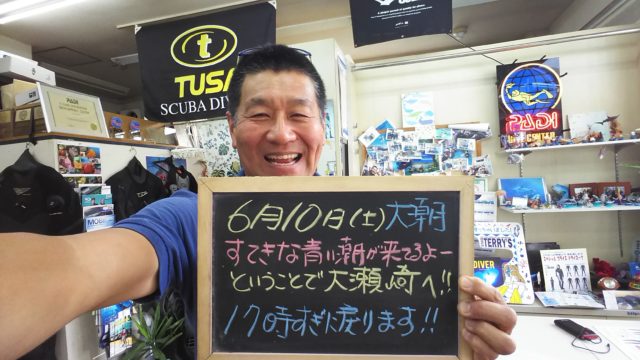 TUSA
SCUBA DIV
PADI
PADI
DIVE CENTER
TERRY'S
DIVER
6月10日(土)大潮
すてきな青い潮が来てるよー
ということで大瀬崎へ!!
17時すぎに戻ります!!